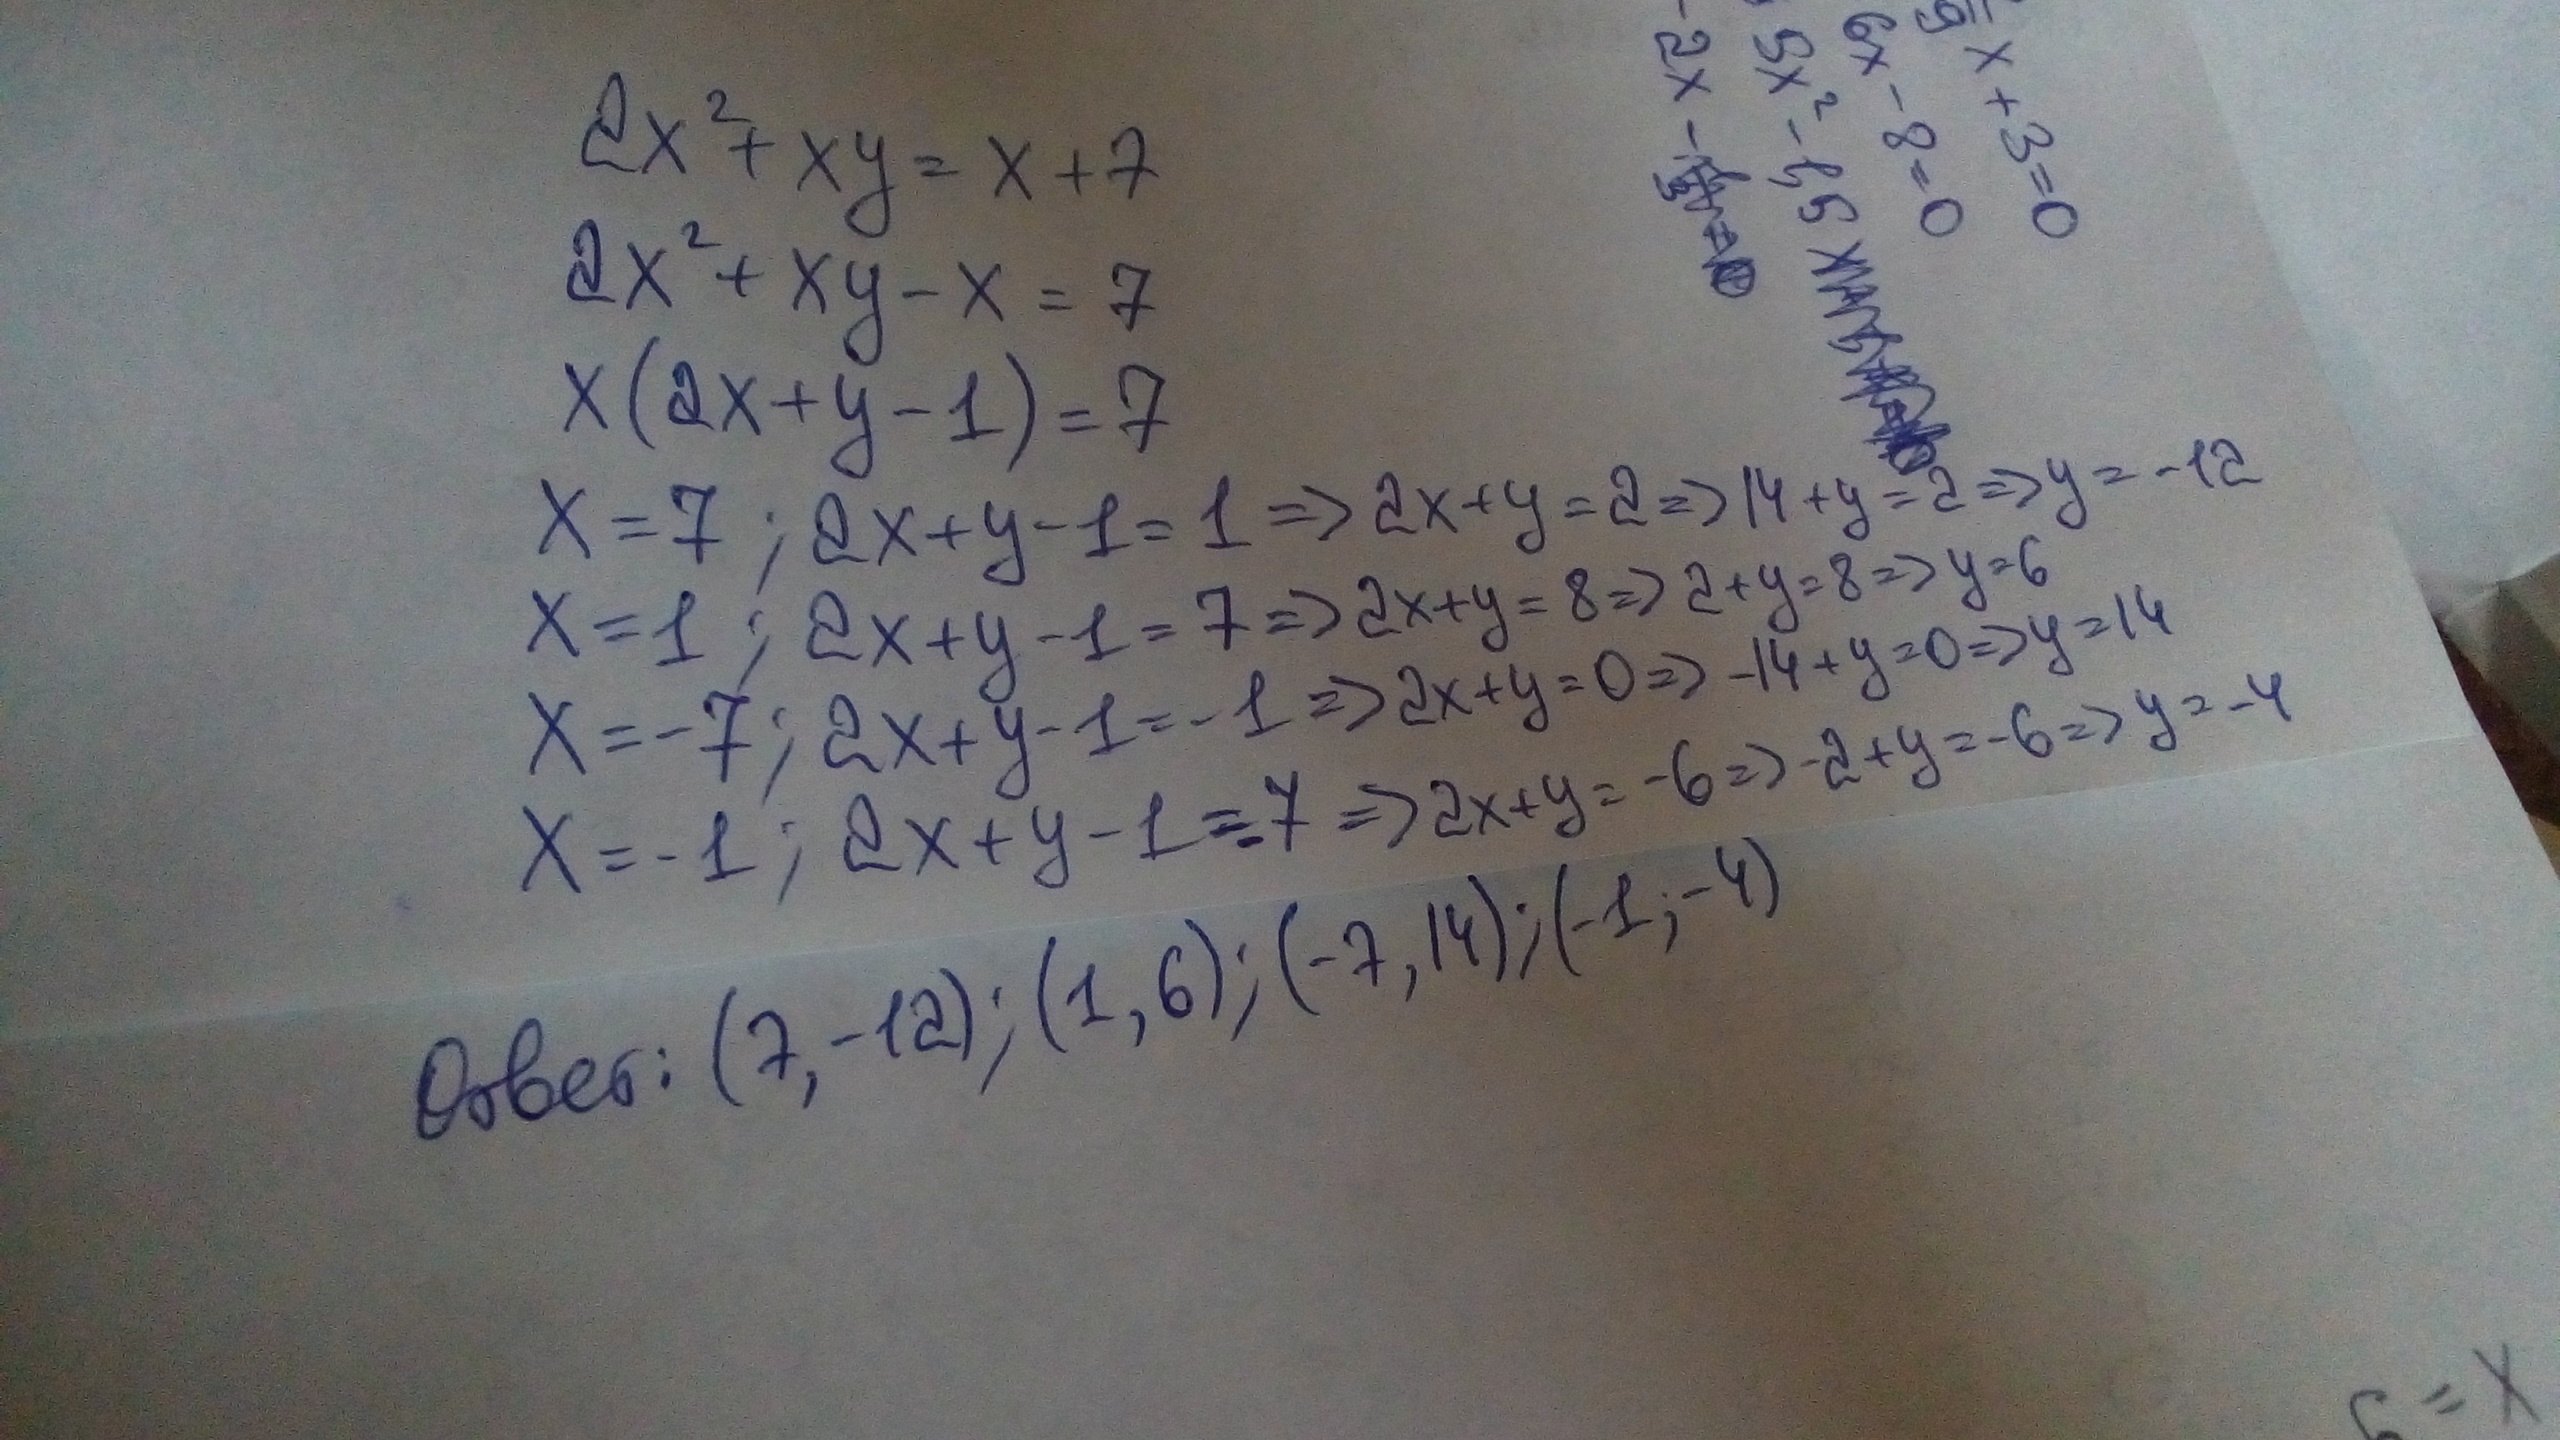 2x²+xy=x+7
2x²+xy-x=7
x(2x+y-1)=7
x=7; 2x+y-1=1=>2x+y=2=>14+y=2=>y=-12
x=1; 2x+y-1=7=>2x+y=8=>2+y=8=>y=6
x=-7; 2x+y-1=-1=>2x+y=0=>-14+y=0=>y=14
x=-1; 2x+y-1=-7=>2x+y=-6=>-2+y=-6=>y=-4
Ответ: (7,-12); (1,6); (-7,14); (-1;-4)
x+3=0
6x-8=0
5x²-
-2x-
=x